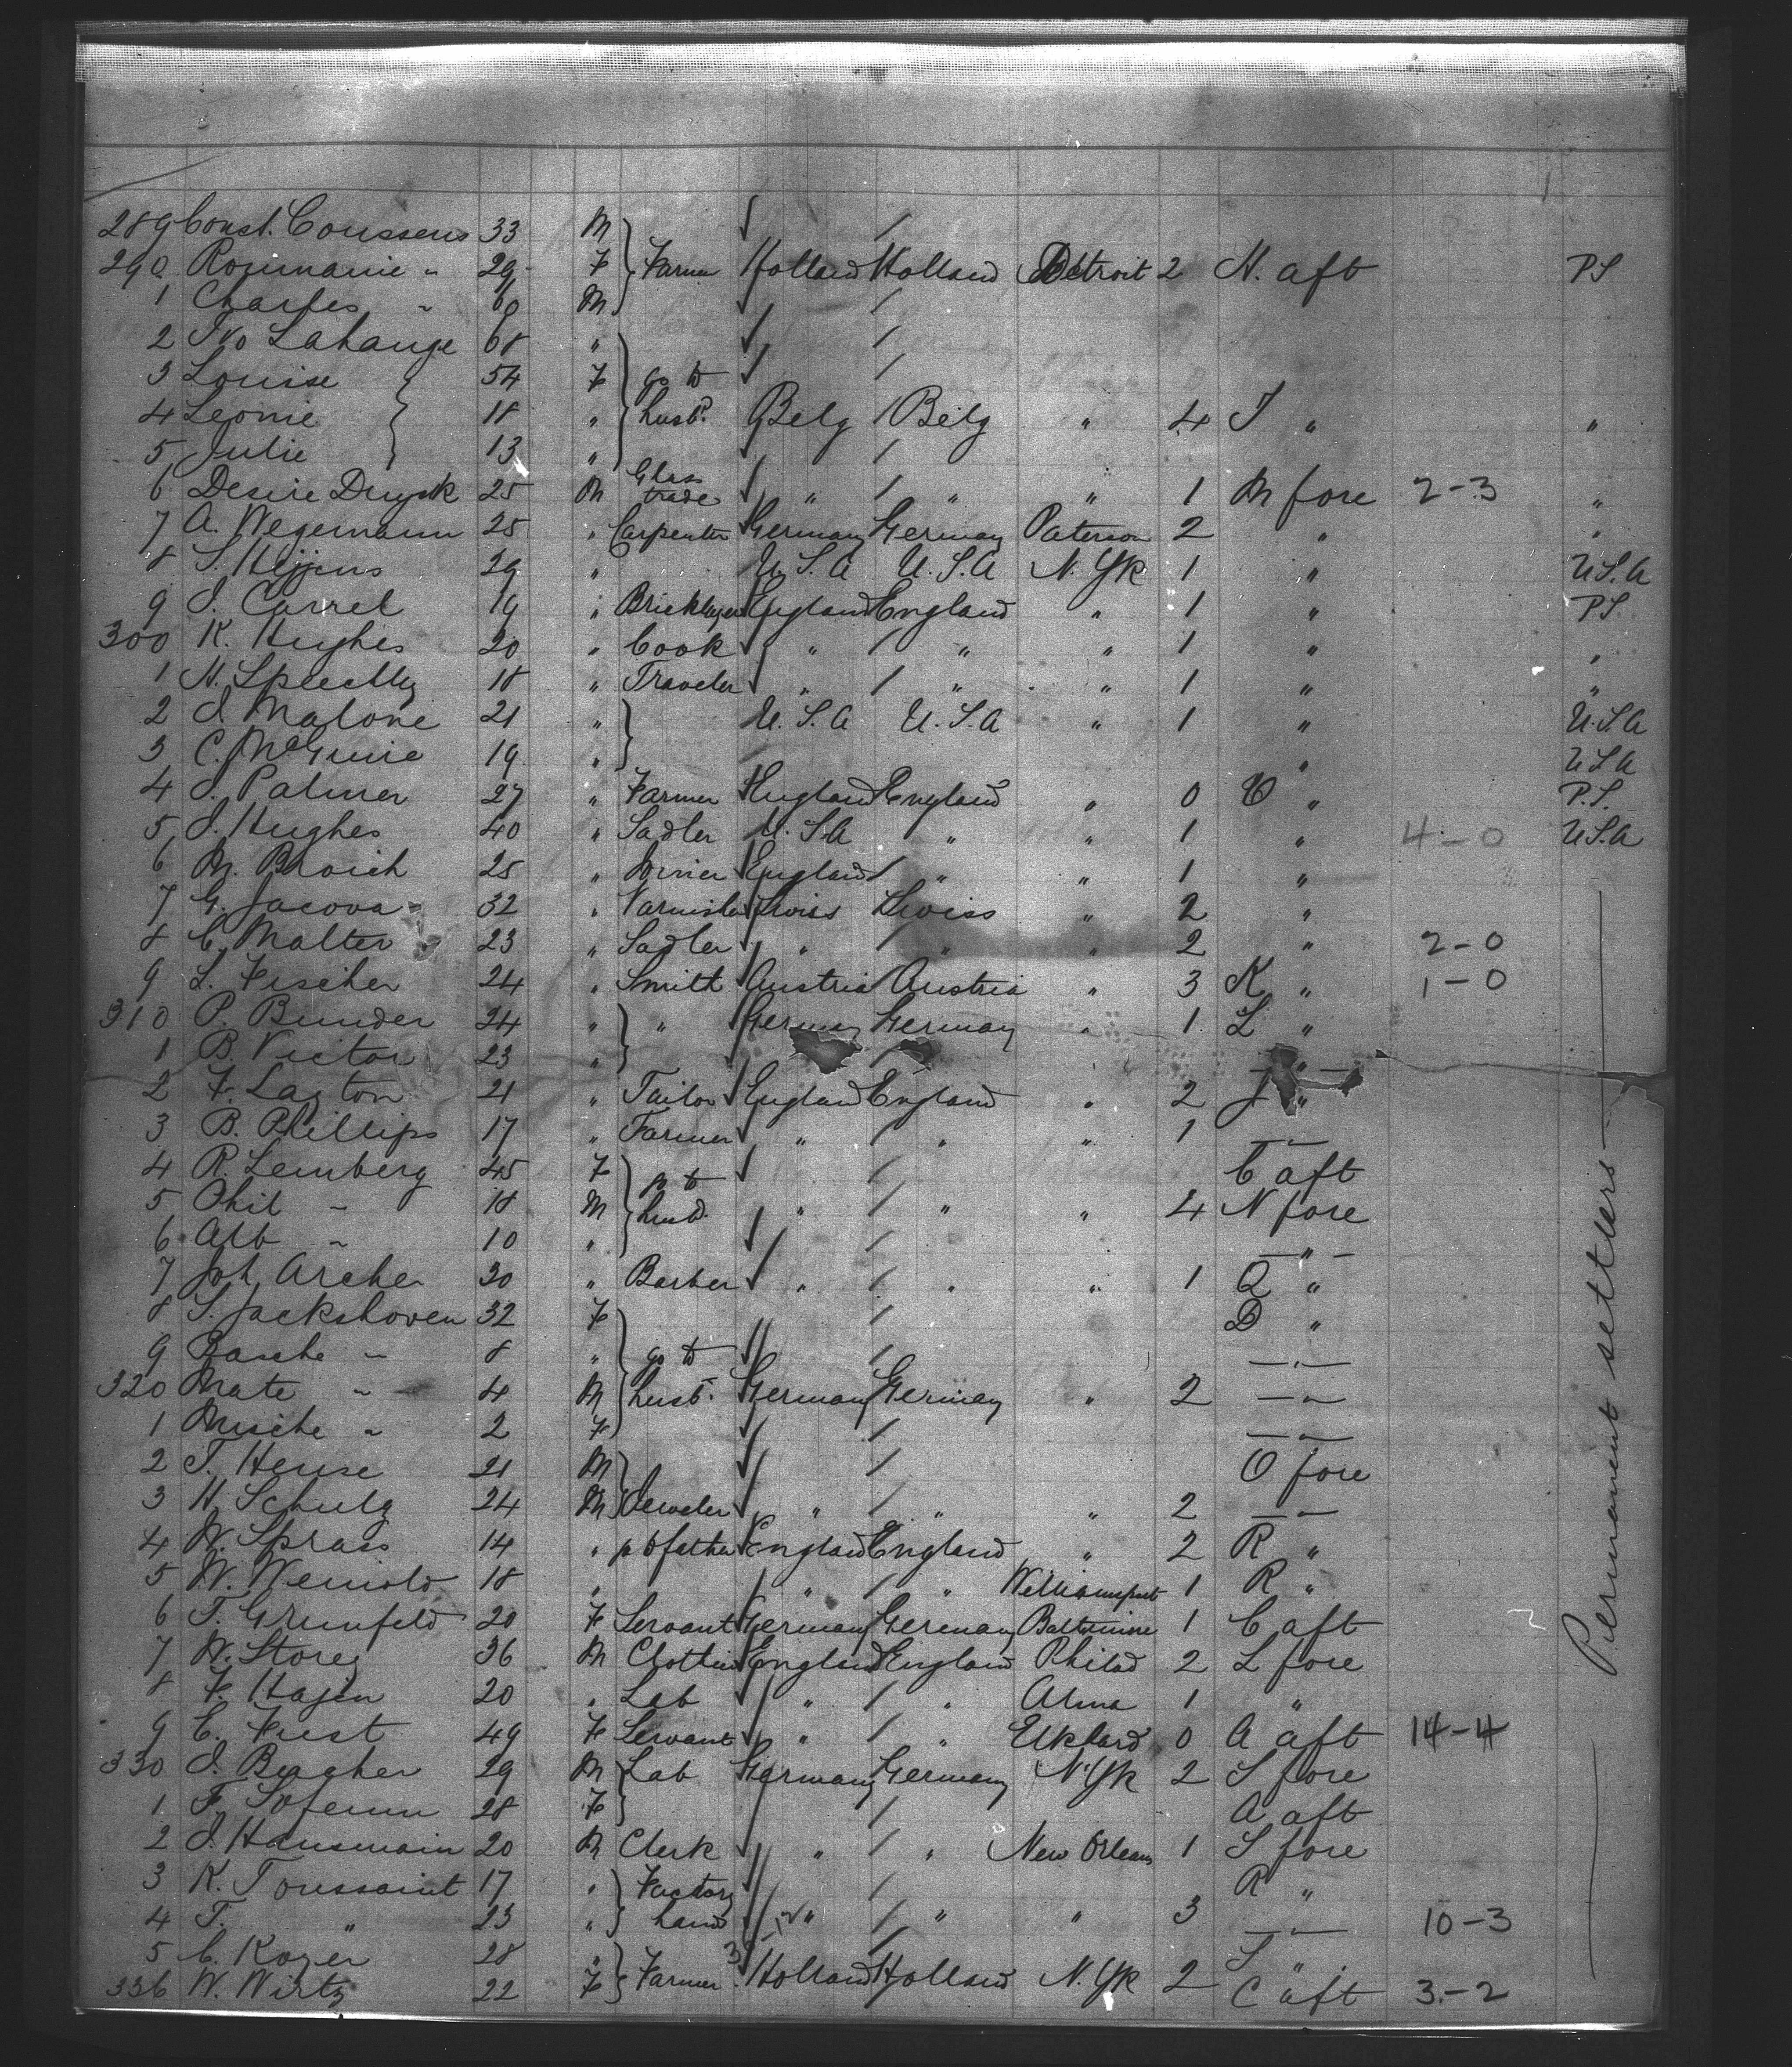 289 Const. Coussens 33 M
290 Roumanie " 29 F Farmer Holland Holland Detroit 2 H. aft P.S
1 Charles " 60 M
2 Ivo Lahange 68 "
3 Louise 54 F go to
4 Leonie 18 " husbd. Belg Belg " 4 J " "
5 Julie 13 "
6 Desire 25 M Glass trade " " " 1 M fore 2-3 "
7 A. Wegemann 25 " Carpenter Germany Germany Paterson 2 " "
8 S. Heijjens 29 " U.S.A U.S.A N.Yk 1 " U.S.A
9 J. Carrel 19 " Bricklayer England England " 1 " P.S
300 K. Hughes 20 " Cook " " " 1 " "
1 H. 18 " Traveler " " " 1 " "
2 J. Malone 21 " U.S.A U.S.A " 1 " U.S.A
3 C. McGuire 19 " " U.S.A
4 J. Palmer 27 " Farmer England England " 0 " P.S.
5 J. Hughes 40 " Sadler U.S.A " " 1 " 4-0 U.S.A
6 M. Broich 25 " Joiner England " " 1 "
7 G. Jacova 32 " Swiss Swiss " 2 "
8 C. Malter 23 " Sadler " " " 2 " 2-0
9 L. Fischer 24 " Smith Austria Austria " 3 K " 1-0
310 P. Bunder 24 " " Germany Germany " 1 L "
1 B. Victor 23 " — " —
2 F. Layton 21 " Tailor England England " 2 J "
3 B. Phillips 17 " Farmer " " " 1 — " —
4 R. Lemberg 45 F go to C aft
5 Phil " 18 M husbd. " " " 4 N fore
6 Alb " 10 " — " —
7 Joh. Archer 30 " Barber " " " 1 Q "
8 S. Jackshoven 32 F D "
9 Basche " 8 " go to — " —
320 Mate " 4 M husbd. Germany Germany " 2 — " —
1 Musche " 2 F — " —
2 T. Hense 21 M O fore
3 H. Schulz 24 M Jeweler " " " 2 — " —
4 W. Sprass 14 " go to father England England " 2 R "
5 W. 18 " " " Williamsport 1 R "
6 T. Grunfeld 20 F Servant Germany Germany Baltimore 1 C aft
7 W. Storey 36 M England England Philad 2 L fore
8 F. Hagen 20 " Lab " " Alma 1 "
9 E. Fuest 49 F Servant " " Elkhard 0 A aft 14-4
330 J. 29 M Lab Germany Germany N.Yk 2 S fore
1 F. 28 F A aft
2 J. Hansmain 20 M Clerk " " New Orleans 1 S fore
3 K. Toussaint 17 " Factory R "
4 T. " 23 " hand " " " 3 — " — 10-3
5 C. Kozer 28 " S "
336 W. Wirtz 22 F Farmer Holland Holland N.Yk 2 C aft 3-2
Permanent settlers